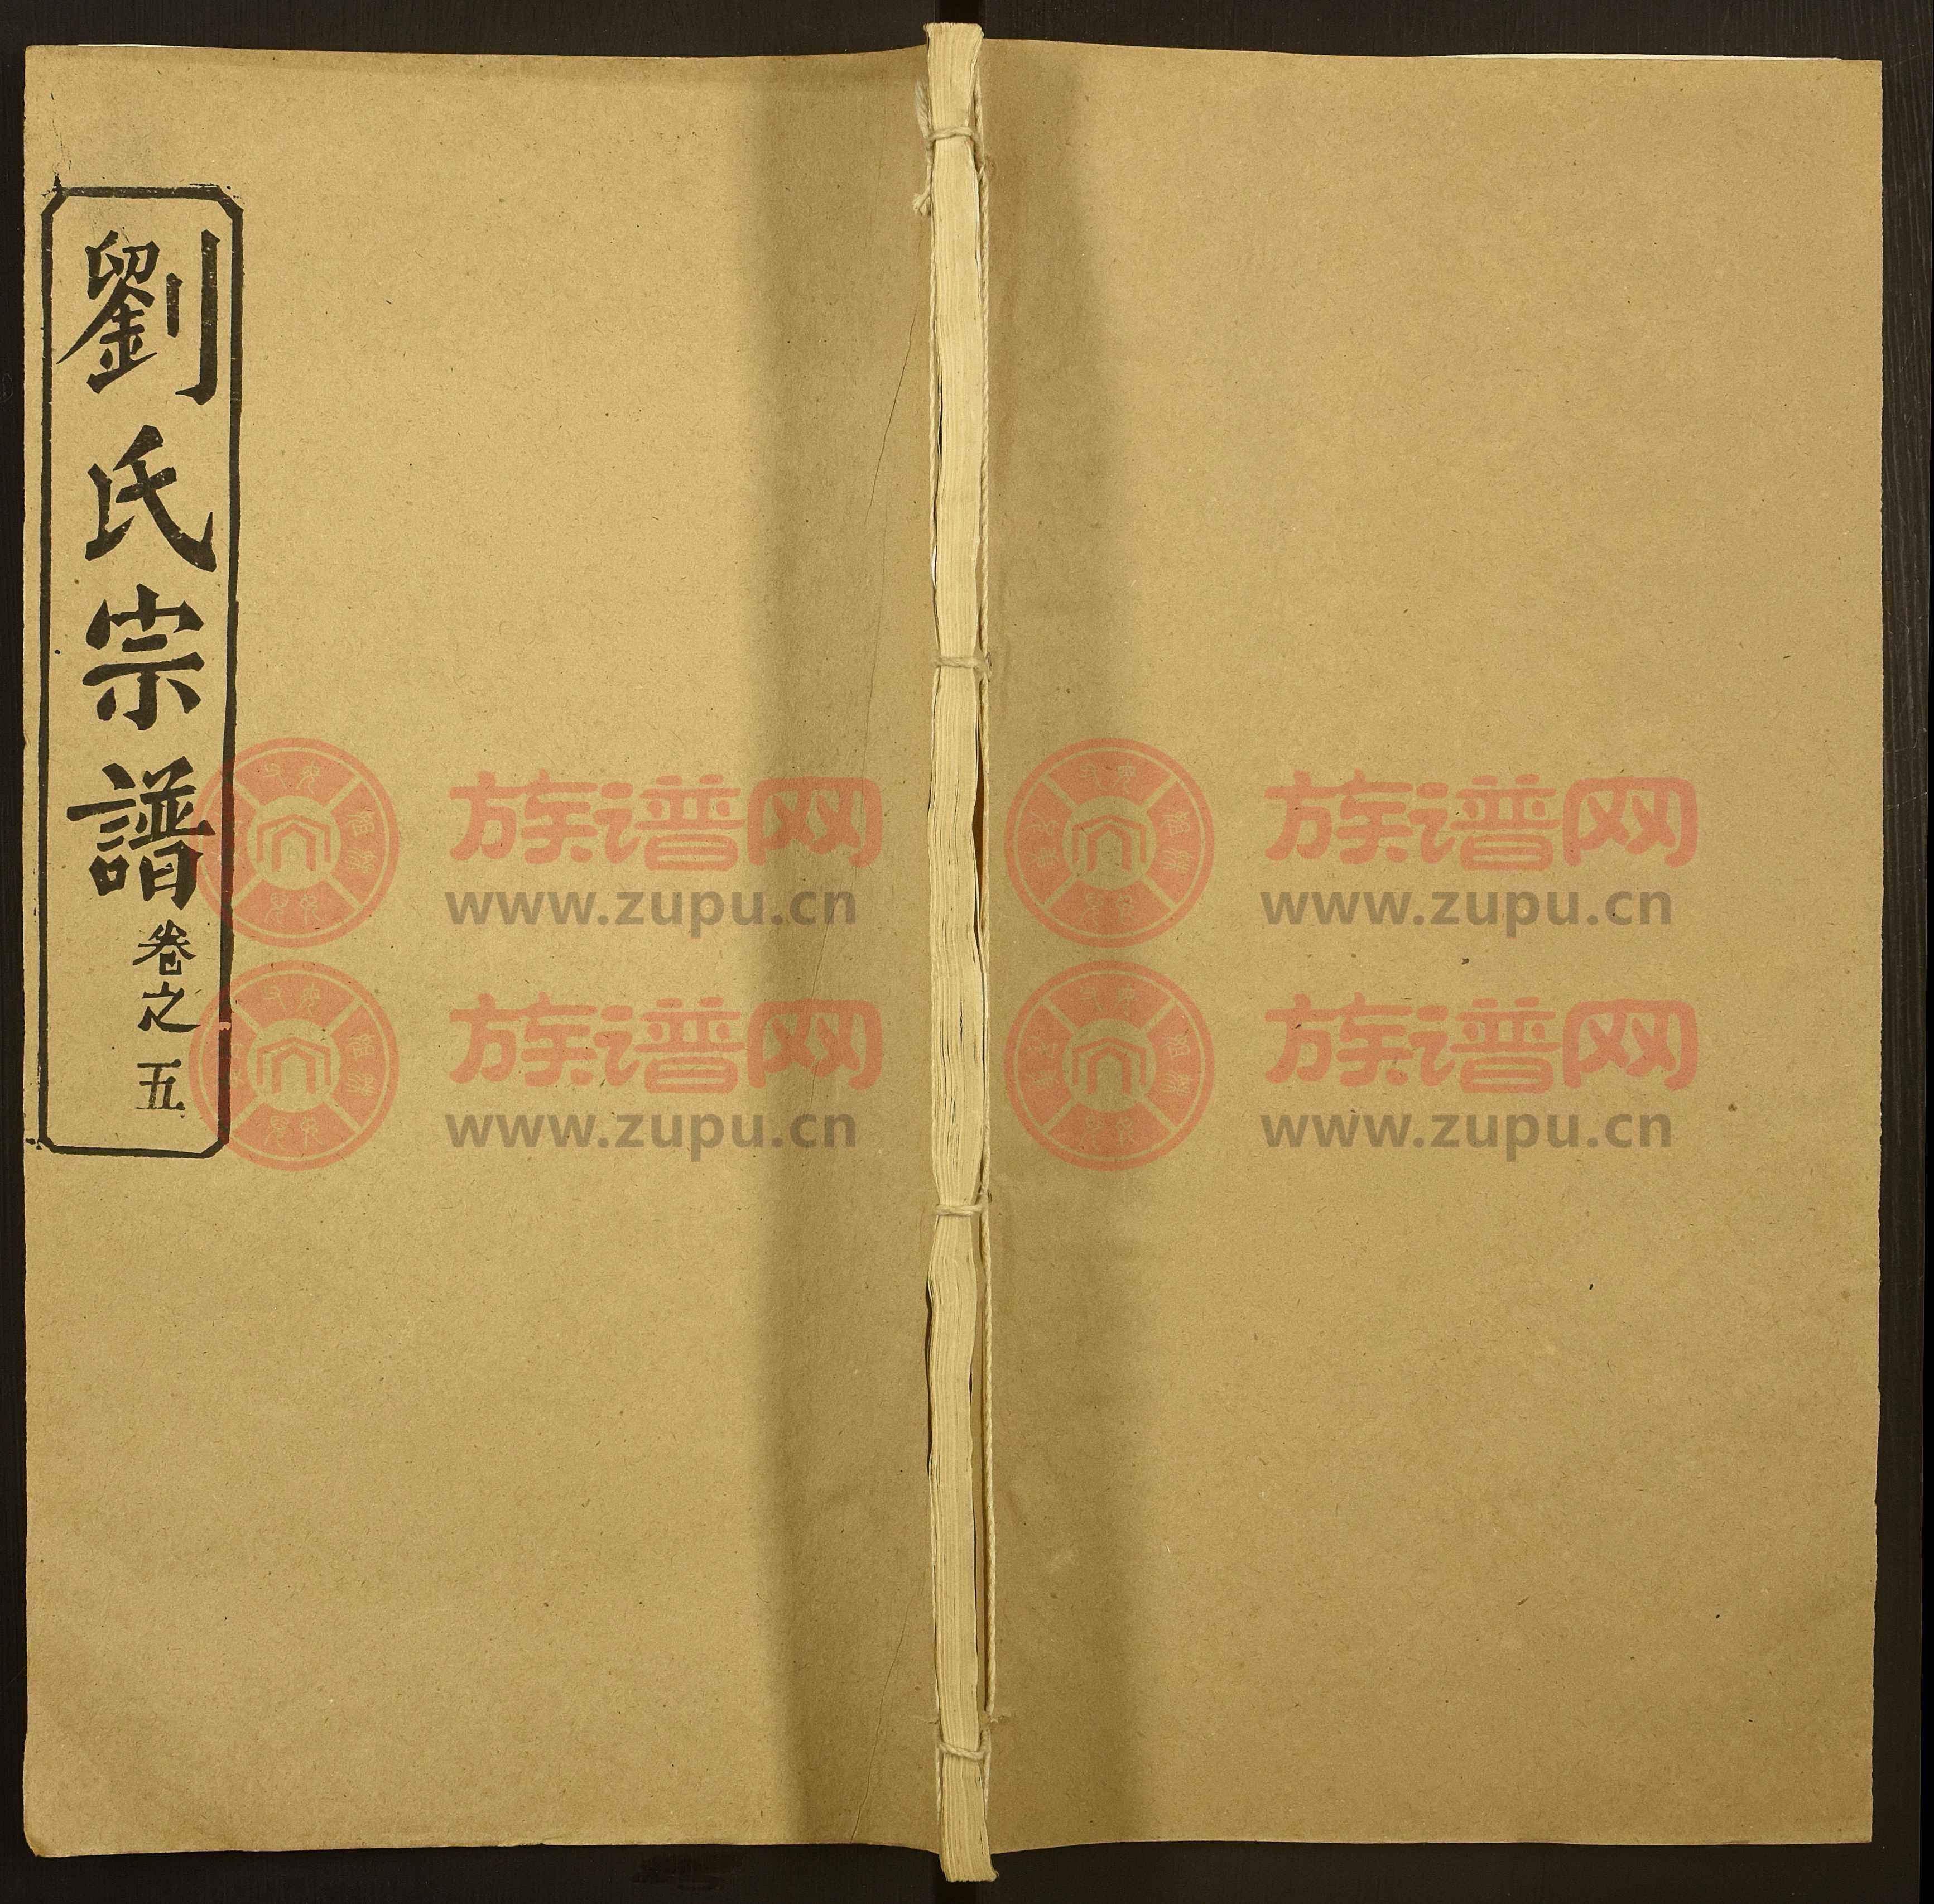 劉氏宗譜
卷之五
族谱网
www.zupu.cn
族谱网
www.zupu.cn
族谱网
www.zupu.cn
族谱网
www.zupu.cn